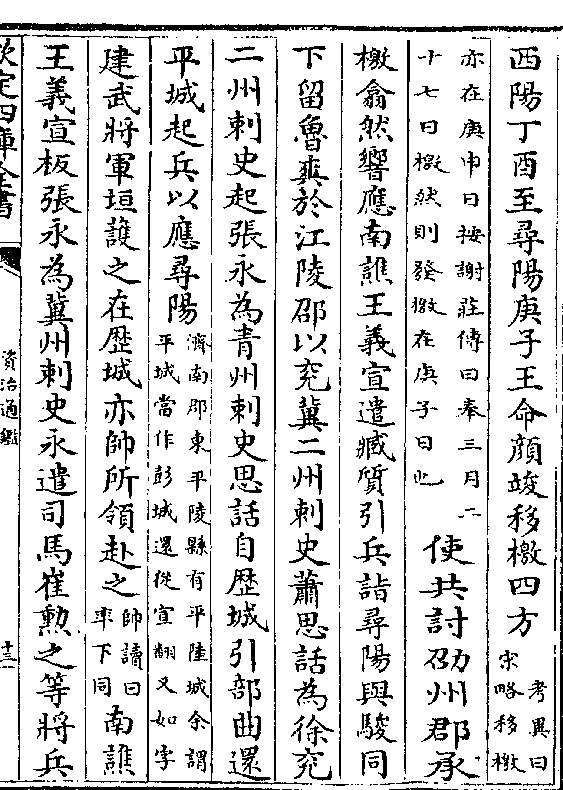 西陽丁酉至尋陽庚子王命顔竣移檄四方考異曰宋略移檄
亦在庚申日按謝莊傳曰奉三月二十七日檄然則發檄在庚子日也使共討劭州郡承
檄翕然響應南譙王義宣遣臧質引兵詣尋陽與駿同
下留魯爽於江陵邵以兖冀二州刺史蕭思話為徐兖
二州刺史起張永為青州刺史思話自歴城引部曲還
平城起兵以應尋陽濟南郡東平陵縣有平陸城余謂平城當作彭城還從宣翻又如字
建武將軍垣護之在歴城亦帥所領赴之帥讀曰率下同南譙
王義宣板張永為冀州刺史永遣司馬崔勲之等將兵
欽定四庫全書
資治通鑑
十三